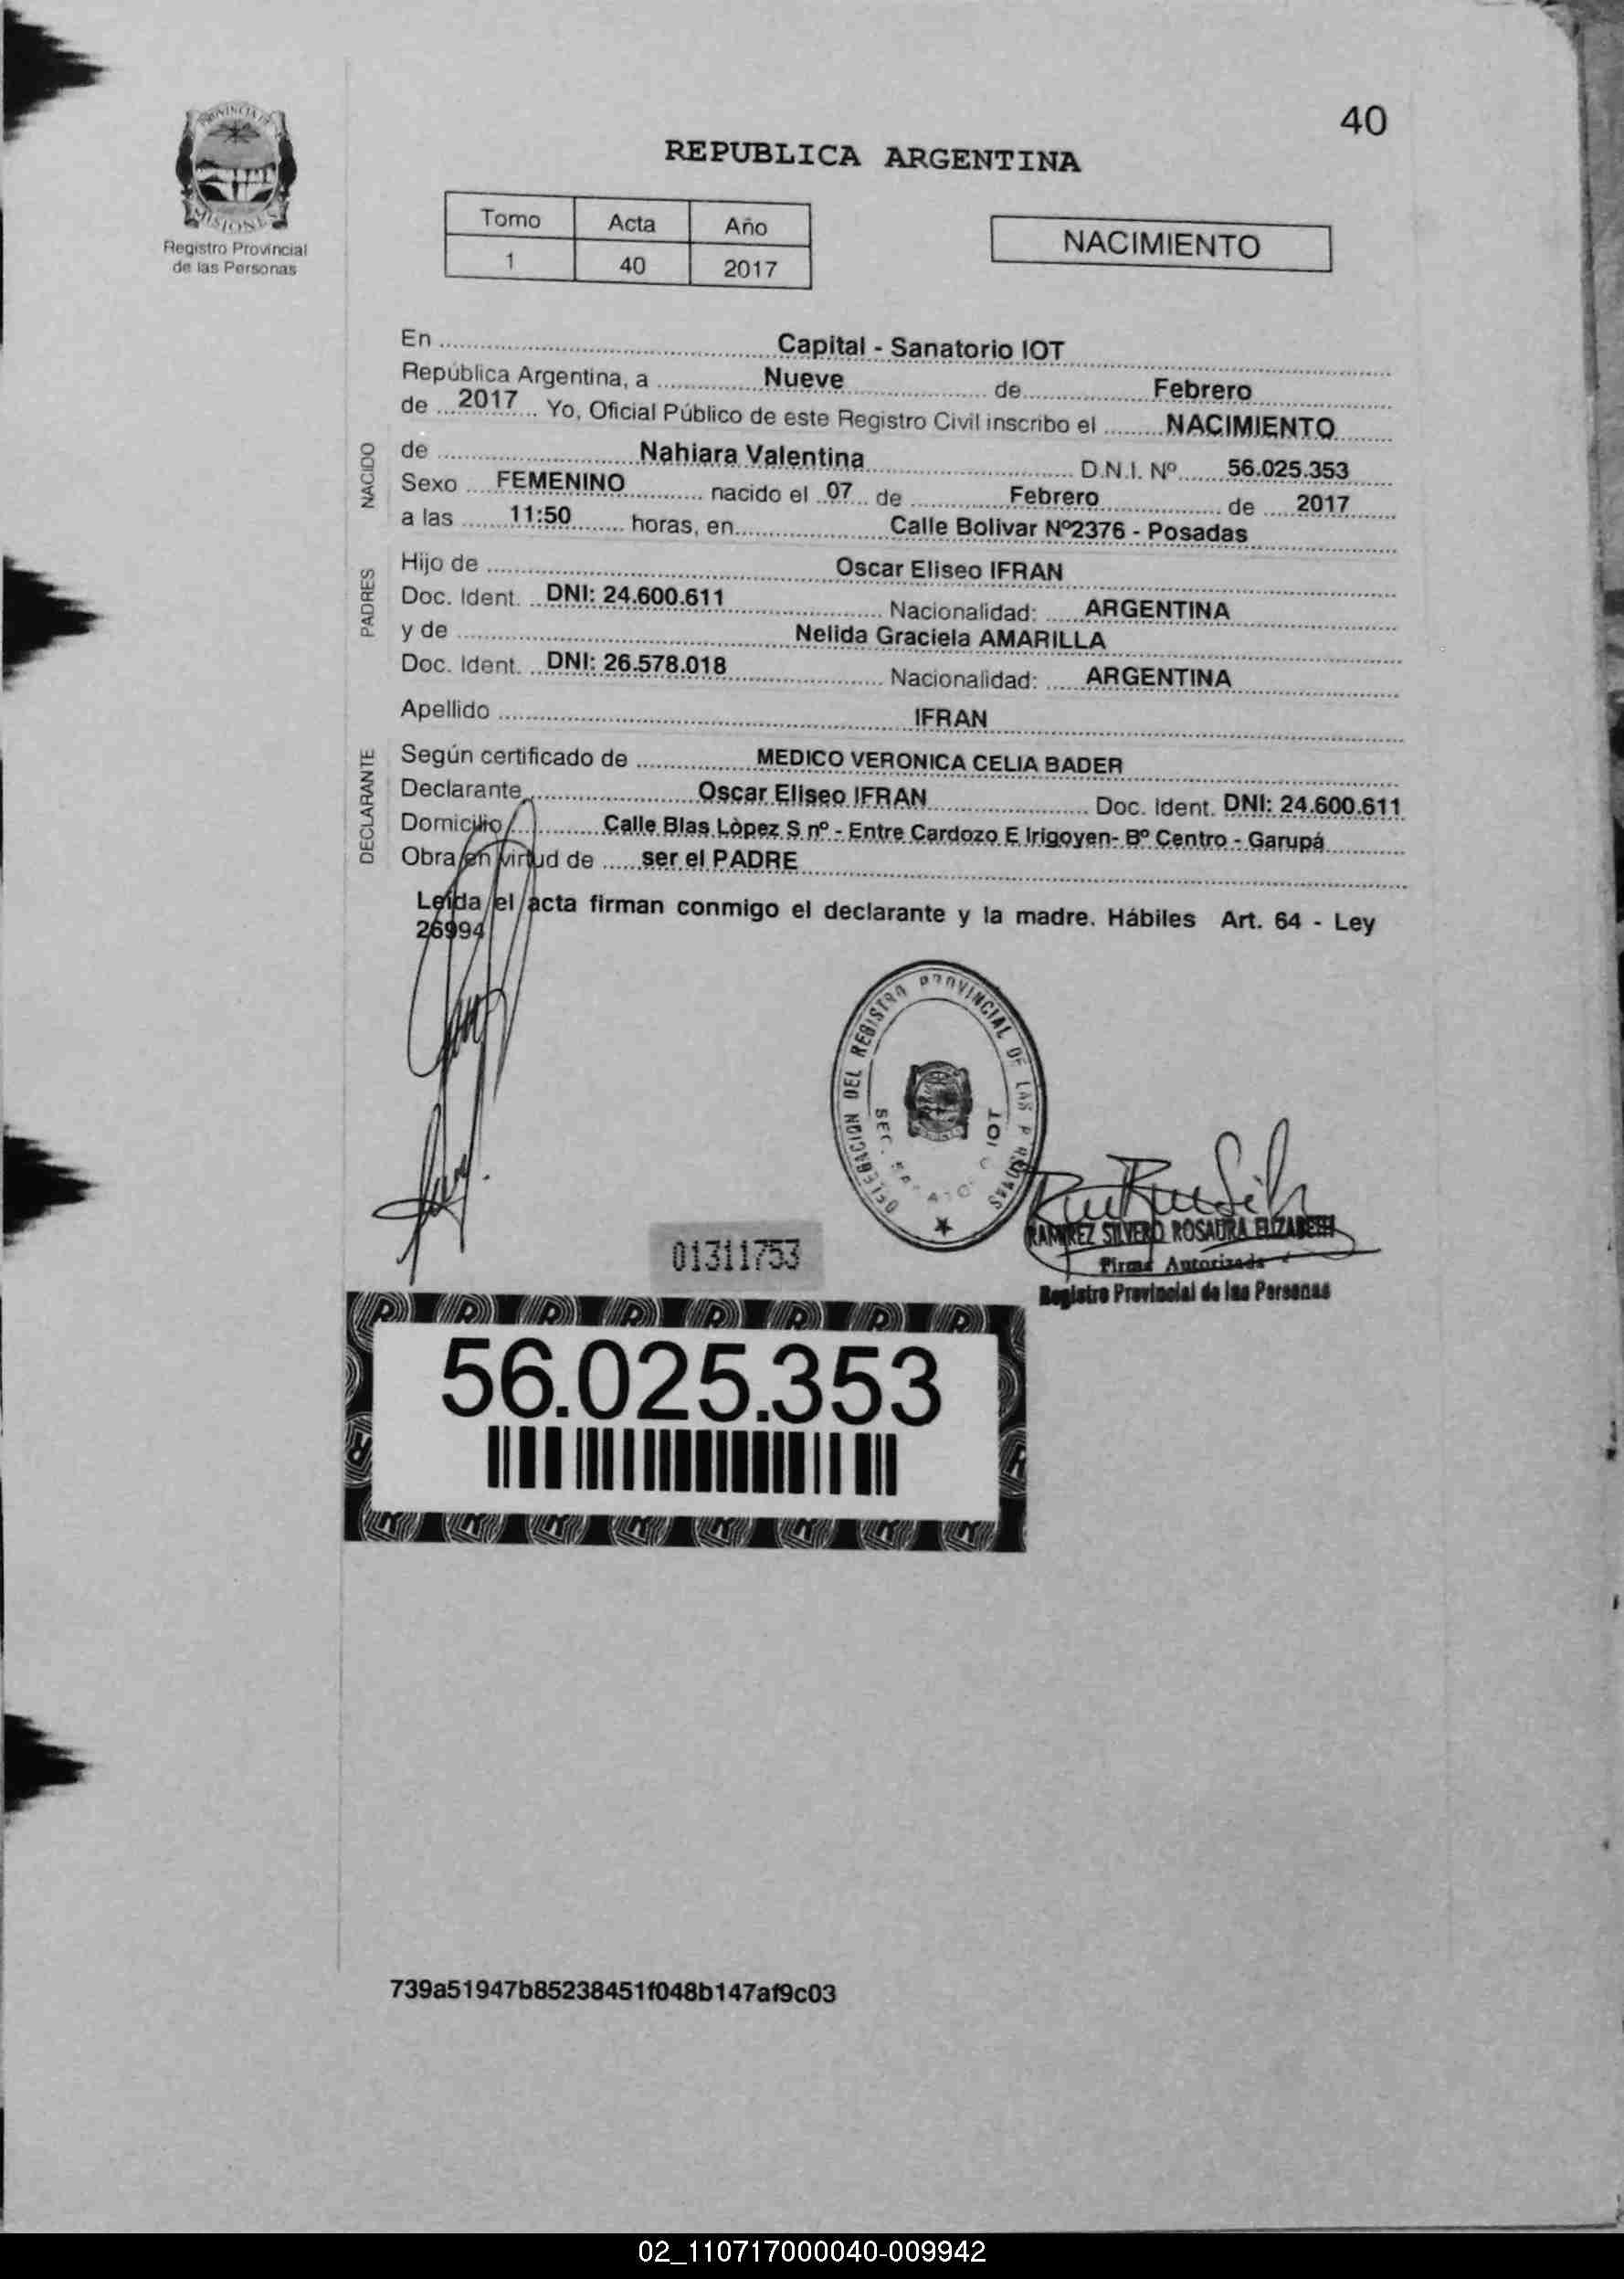 40
PROVINCIA DE
MISIONES
Registro Provincial
de las Personas
REPUBLICA ARGENTINA
Tomo Acta Año
1 40 2017
NACIMIENTO
En Capital - Sanatorio IOT
República Argentina, a Nueve de Febrero
de 2017 Yo, Oficial Público de este Registro Civil inscribo el NACIMIENTO
NACIDO
de Nahiara Valentina D.N.I. Nº 56.025.353
Sexo FEMENINO nacido el 07 de Febrero de 2017
a las 11:50 horas, en Calle Bolivar Nº2376 - Posadas
PADRES
Hijo de Oscar Eliseo IFRAN
Doc. Ident. DNI: 24.600.611 Nacionalidad: ARGENTINA
y de Nelida Graciela AMARILLA
Doc. Ident. DNI: 26.578.018 Nacionalidad: ARGENTINA
Apellido IFRAN
DECLARANTE
Según certificado de MEDICO VERONICA CELIA BADER
Declarante Oscar Eliseo IFRAN Doc. Ident. DNI: 24.600.611
Domicilio Calle Blas Lòpez S nº - Entre Cardozo E Irigoyen- Bº Centro - Garupá
Obra en virtud de ser el PADRE
Leída el acta firman conmigo el declarante y la madre. Hábiles Art. 64 - Ley
26994
DELEGACION DEL REGISTRO PROVINCIAL DE LAS
IOT
RAMIREZ SILVERO ROSAURA ELIZABETH
Firma Autorizada
Registro Provincial de las Personas
01311753
56.025.353
739a51947b85238451f048b147af9c03
02_110717000040-009942